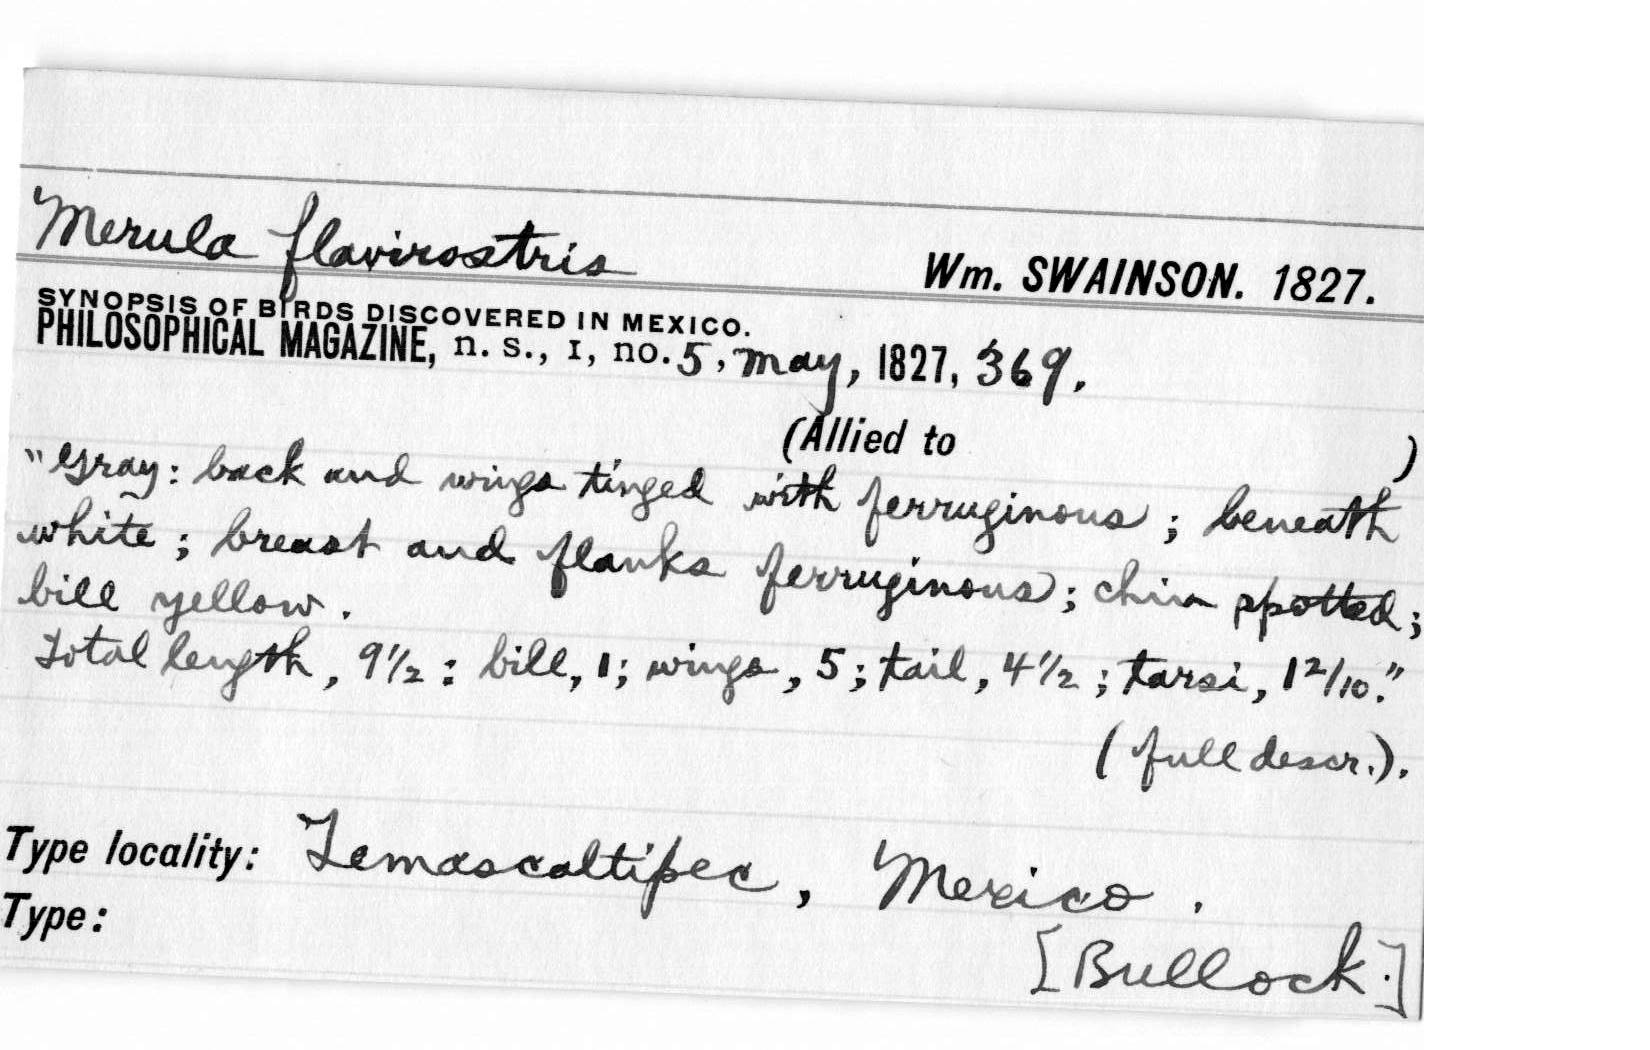 Merula flavirostris
Wm. SWAINSON. 1827.
SYNOPSIS OF BIRDS DISCOVERED IN MEXICO.
PHILOSOPHICAL MAGAZINE, n. s., I, no. 5, May, 1827, 369.
(Allied to )
"Gray: back and wings tinged with ferruginous; beneath
white; breast and flanks ferruginous; chin spotted;
bill yellow.
Total length, 9½: bill, 1; wings, 5; tail, 4½; tarsi, 1 2/10."
(full descr.).
Type locality: Temascaltipec, Mexico.
Type:
[Bullock.]